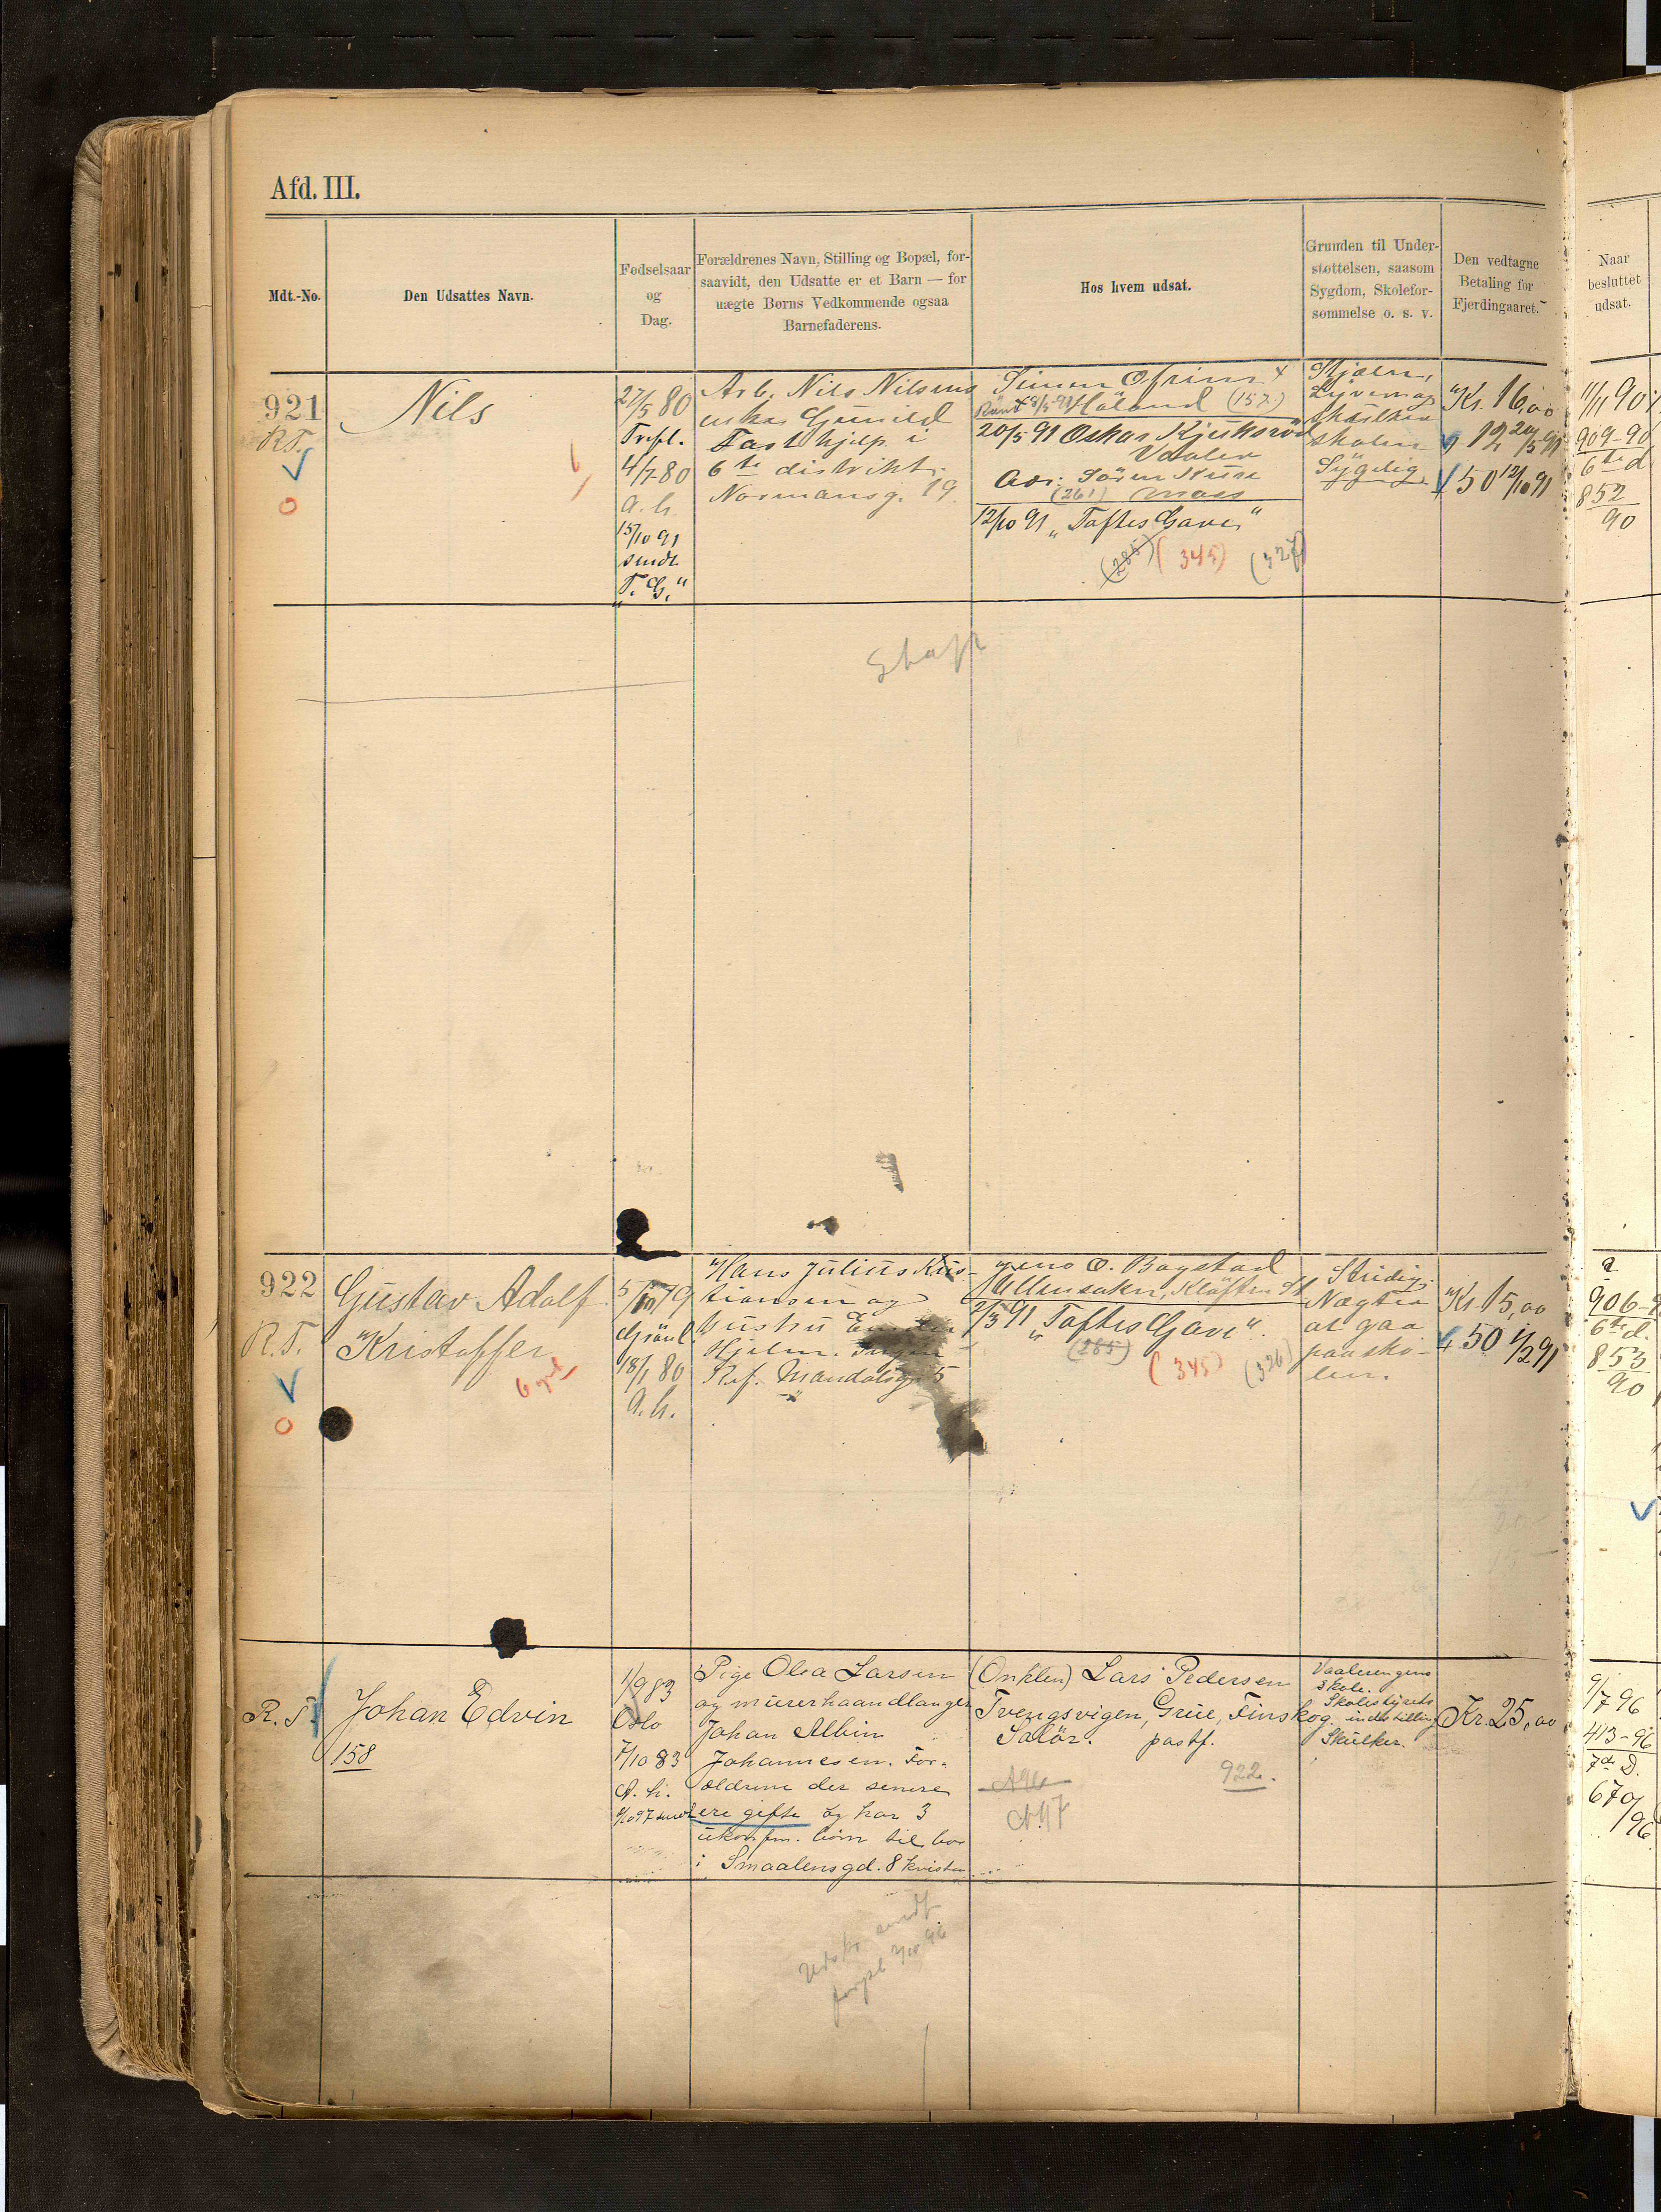 Afd. III.
Mdt.-No.
Den Udsattes Navn.
Fødselsaar
og
Dag.
Forældrenes Navn, Stilling og Bopæl, for-
saavidt, den Udsatte er et Barn — for
uægte Børns Vedkommende ogsaa
Barnefaderens.
Hos hvem udsat.
Grunden til Under-
støttelsen, saasom
Sygdom, Skolefor-
sømmelse o. s. v.
Den vedtagne
Betaling for
Fjerdingaaret.
Naar
besluttet
udsat.
921
R.T.
Nils
27/5 80
Trefl.
4/7-80
a. h.
15/10 91
sendt
"T. G."
Arb. Nils Nilsens
enke Gunild
Fast hjelp i
6te distrikt.
Normansg. 19.
Simen Ofrim
Høland (157)
20/5 91 Oskar Kjuksrød
Vaaler
Adr: Sören Kure
(261) Moss
12/10 91 "Toftes Gave"
(285) (345) (327)
Stjæler,
Lyver og
skulker
skolen
Sygelig.
Kr. 16,00
" 12 20/5 91
" 50 12/10 91
11/11 90
909-90
6te d
852
90
922
R.T.
Gustav Adolf
Kristoffer
5/ 79
Grönl
18/1 80
a. h.
Hans Julius Kris-
tiansen og
hustru
Hjelm.
Ref. Mandalsg. 5
Jens O. Bogstad
Ullensaker, Kløften St
2/3 91 "Toftes Gave".
(285)
(345) (326)
Stridig.
Nægter
at gaa
paa sko-
len.
Kr. 15,00
" 50 1/2 91
906-9
6te d.
853
90
R. T.
Johan Edvin
158
1/9 83
Oslo
7/10 83
A. h.
Pige Olea Larsen
og murerhaandlanger
Johan Albin
Johannesen. For-
ældrene der senere
ere gifte og har 3
ukonfm. börn til bor
i Smaalensgd. 8 kvisten
(Onklen) Lars Pedersen
Tvengsvigen, Grue, Finskog
Solör. postf.
922.
Vaalerengens
Skole.
Skolestyrets
indstilling
Skulker.
Kr. 25,00
9/7 96
413-96
7de D.
679
/96
sendt